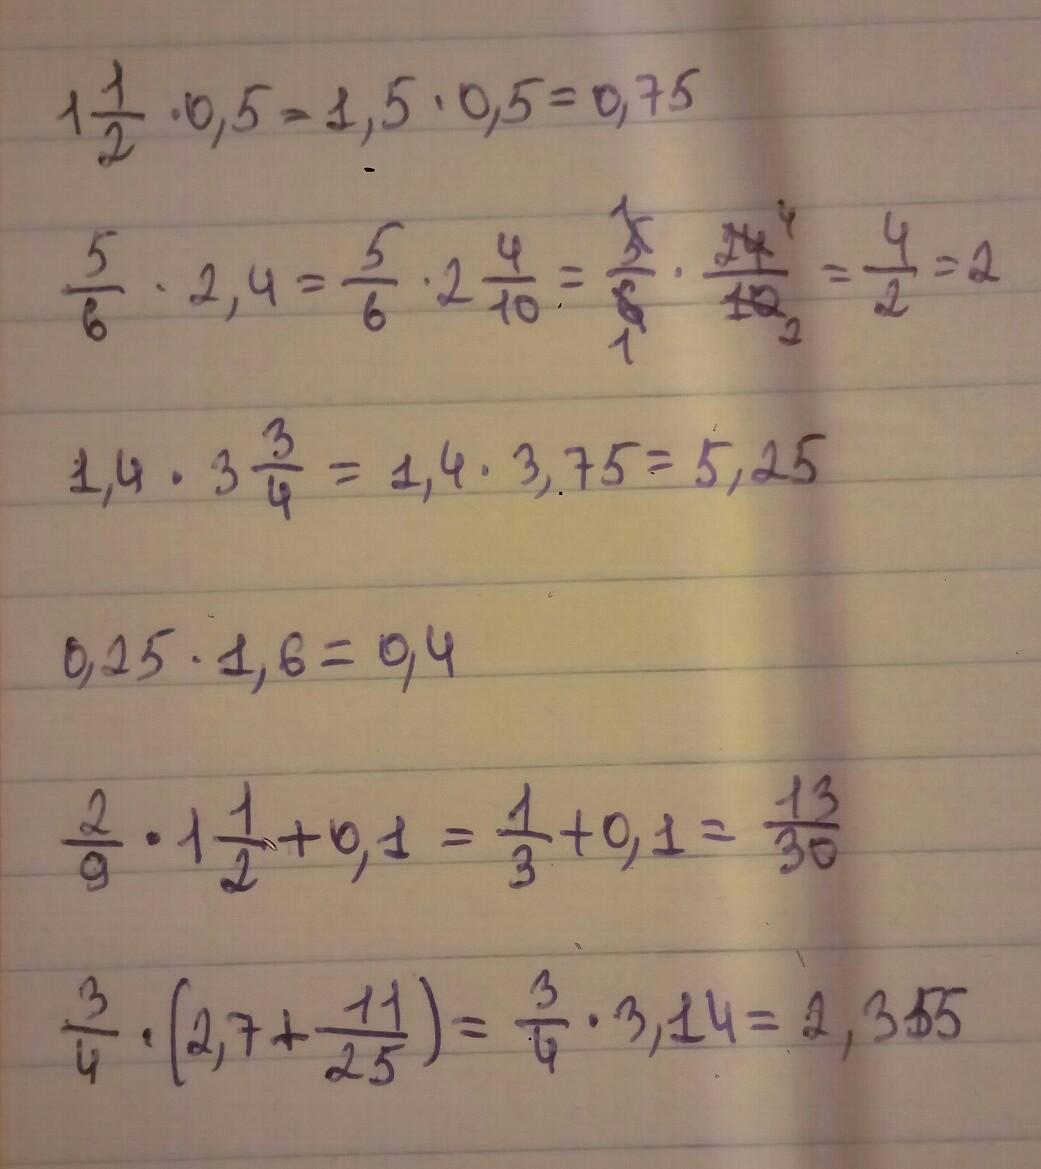 1 1/2 · 0,5 = 1,5 · 0,5 = 0,75
5/6 · 2,4 = 5/6 · 2 4/10 = 5/6 · 24/10 = 4/2 = 2
1,4 · 3 3/4 = 1,4 · 3,75 = 5,25
0,25 · 1,6 = 0,4
2/9 · 1 1/2 + 0,1 = 1/3 + 0,1 = 13/30
3/4 · (2,7 + 11/25) = 3/4 · 3,14 = 2,355